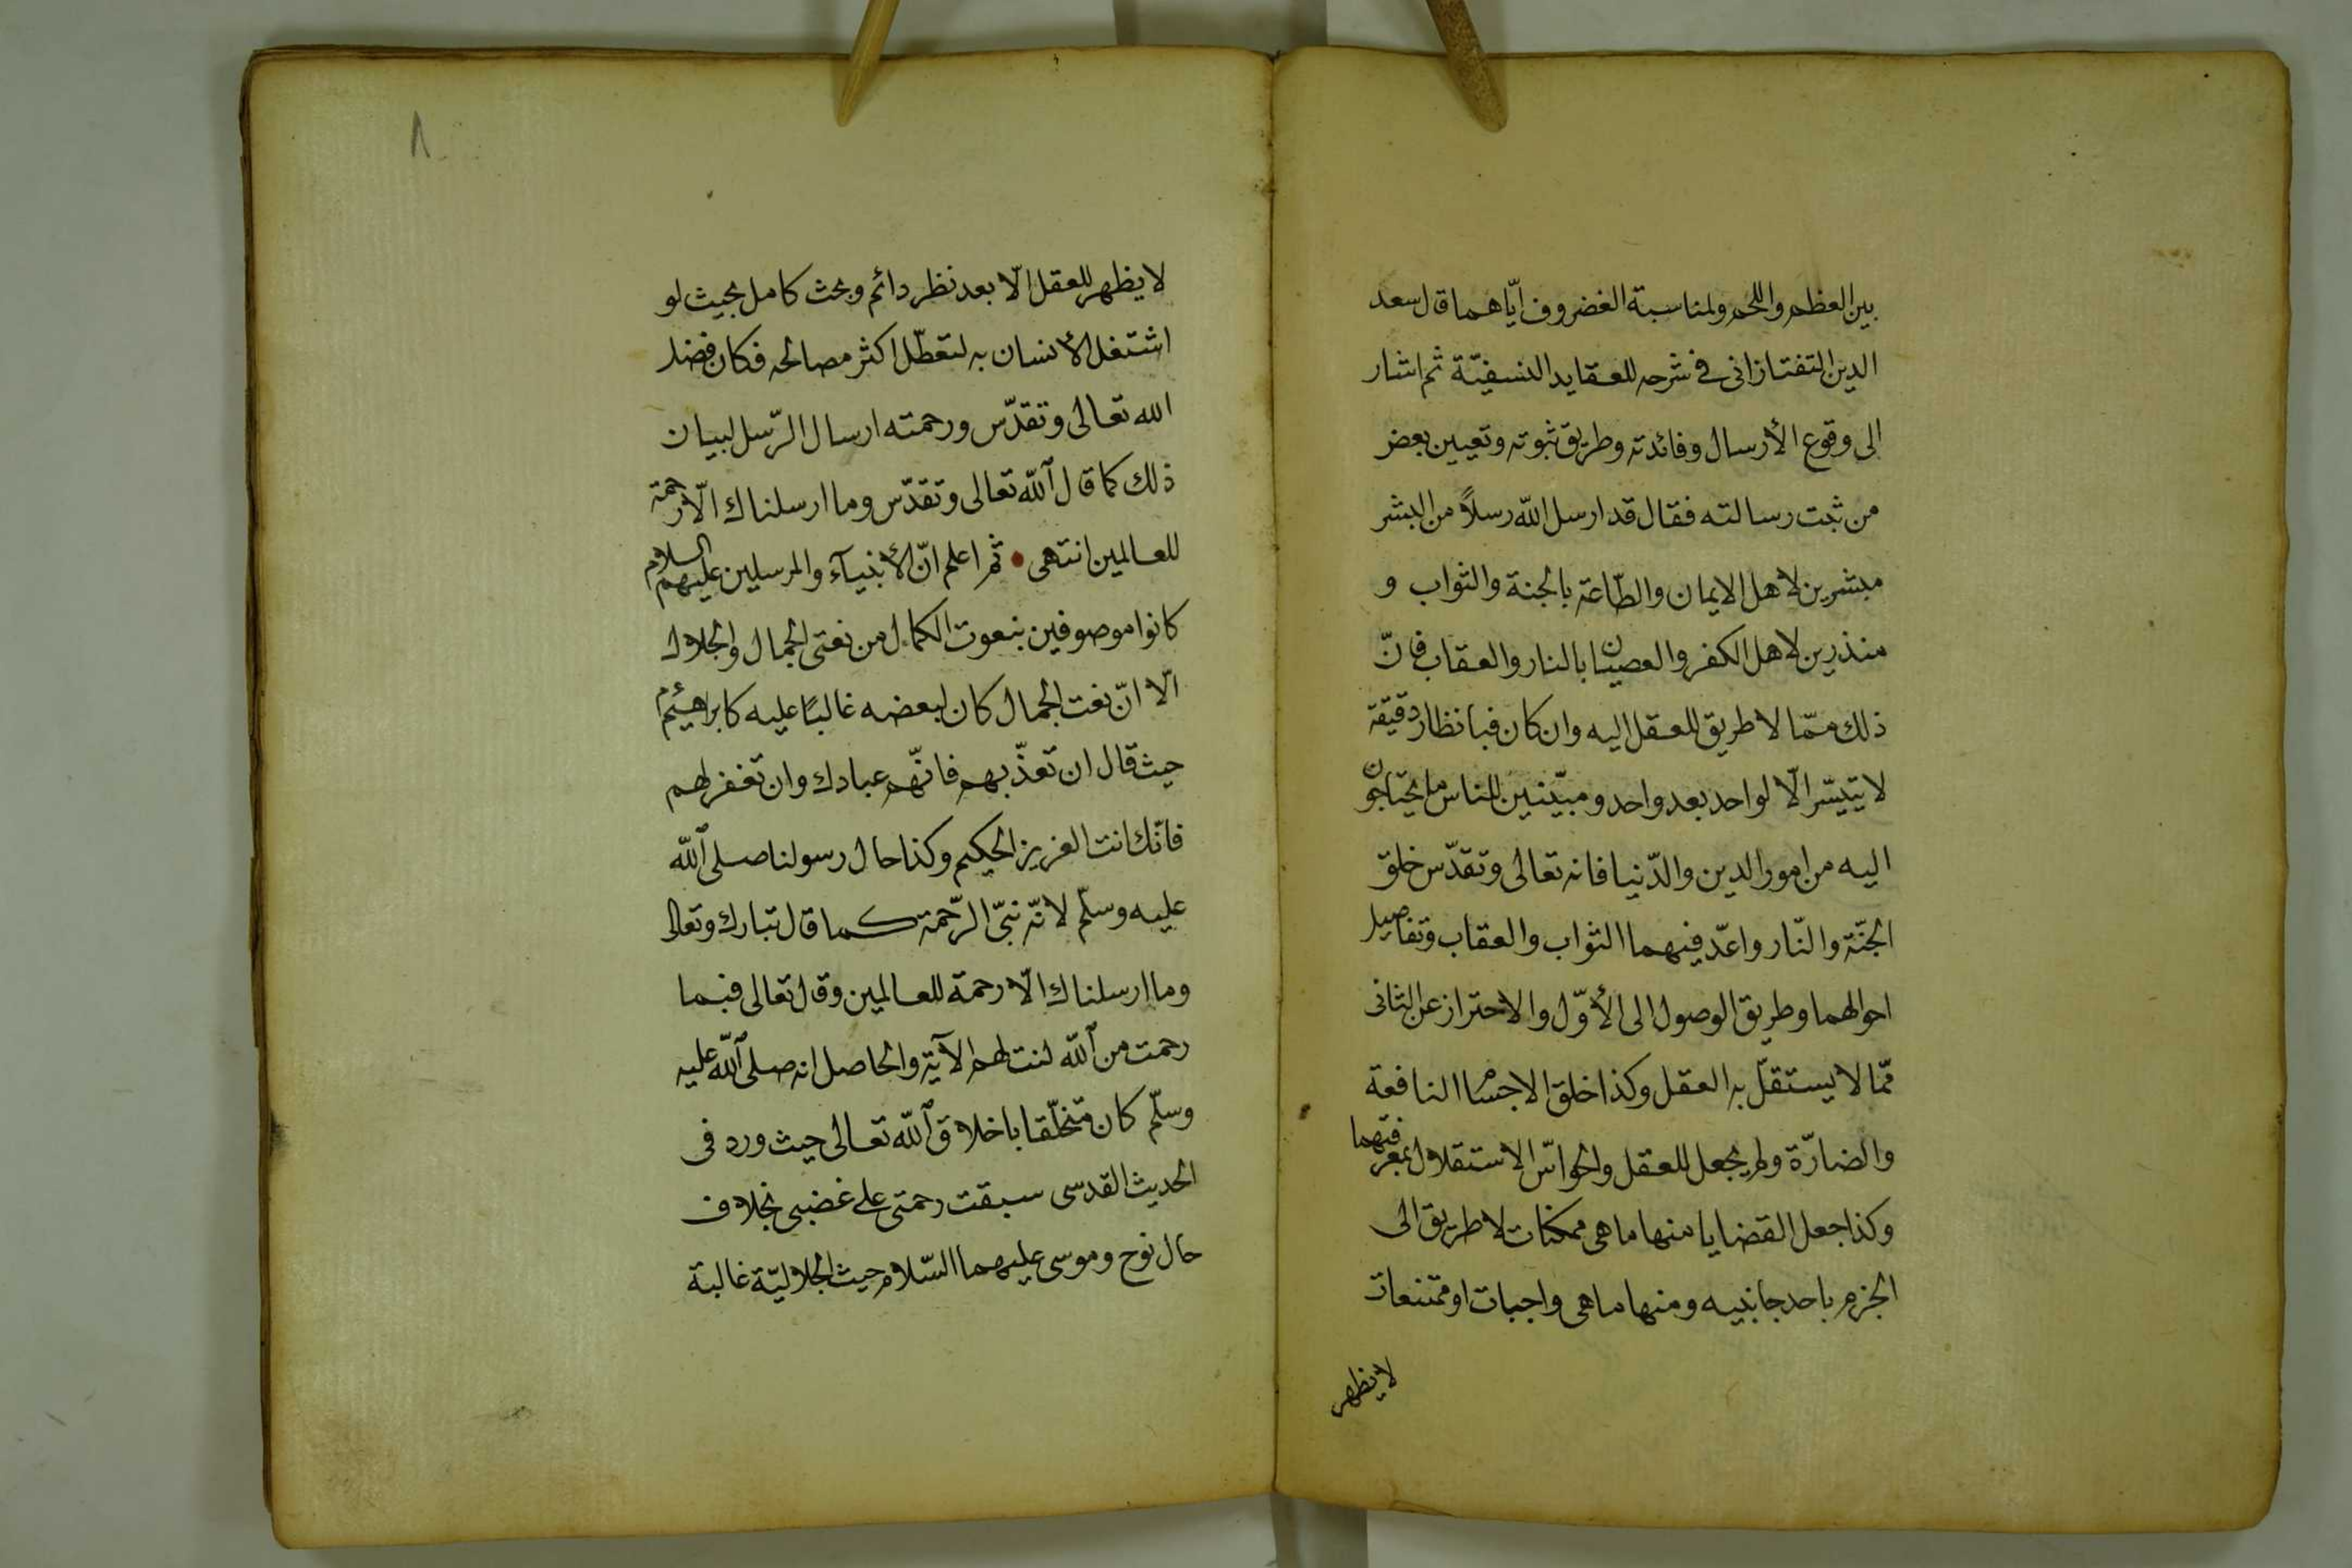 بين العظم واللحم ولمناسبة الغضروف ايّاهما قال سعد
الدين التفتازانى فى شرحه للعقايد النسفيّة ثم اشار
الى وقوع الأرسال وفائدته وطريق ثبوته وتعيين بعض
من ثبت رسالته فقال قد ارسل الله رسلاً من البشر
مبشرين لاهل الايمان والطّاعة بالجنة والثواب و
منذرين لاهل الكفر والعصيان بالنار والعقاب فانّ
ذلك ممّا لا طريق للعقل اليه وان كان فبانظار دقيقة
لا يتيسّر الّا لواحد بعد واحد ومبيّنين للناس ما يحتاجون
اليه من امور الدين والدّنيا فانه تعالى وتقدّس خلق
الجنّة والنّار واعدّ فيهما الثواب والعقاب وتفاصيل
احوالهما وطريق الوصول الى الأوّل والاحتراز عن الثانى
ممّا لا يستقلّ به العقل وكذا خلق الاجسام النافعة
والضارّة ولم يجعل للعقل والحواسّ الاستقلال بمعرفتهما
وكذا جعل القضايا منها ما هى ممكنات لا طريق الى
الجزم باحد جانبيه ومنها ما هى واجبات او ممتنعات
لا يظهر
٨
لا يظهر للعقل الّا بعد نظر دائم وبحث كامل بحيث لو
اشتغل الأنسان به لتعطّل اكثر مصالحه فكان فضل
الله تعالى وتقدّس ورحمته ارسال الرّسل لبيان
ذلك كما قال الله تعالى وتقدّس وما ارسلناك الّا رحمة
للعالمين انتهى • ثم اعلم انّ الأنبيآء والمرسلين عليهم السلام
كانوا موصوفين بنعوت الكمال من نعتى الجمال والجلال
الّا انّ نعت الجمال كان لبعضه غالبًا عليه كابراهيم
حيث قال ان تعذّبهم فانّهم عبادك وان تغفر لهم
فانّك انت العزيز الحكيم وكذا حال رسولنا صلى الله
عليه وسلّم لانّه نبىّ الرّحمة كما قال تبارك وتعالى
وما ارسلناك الّا رحمة للعالمين وقال تعالى فبما
رحمت من الله لنت لهم الآية والحاصل انه صلى الله عليه
وسلّم كان متخلّقا باخلاق الله تعالى حيث ورد فى
الحديث القدسى سبقت رحمتى على غضبى بخلاف
حال نوح وموسى عليهما السّلام حيث الجلاليّة غالبة